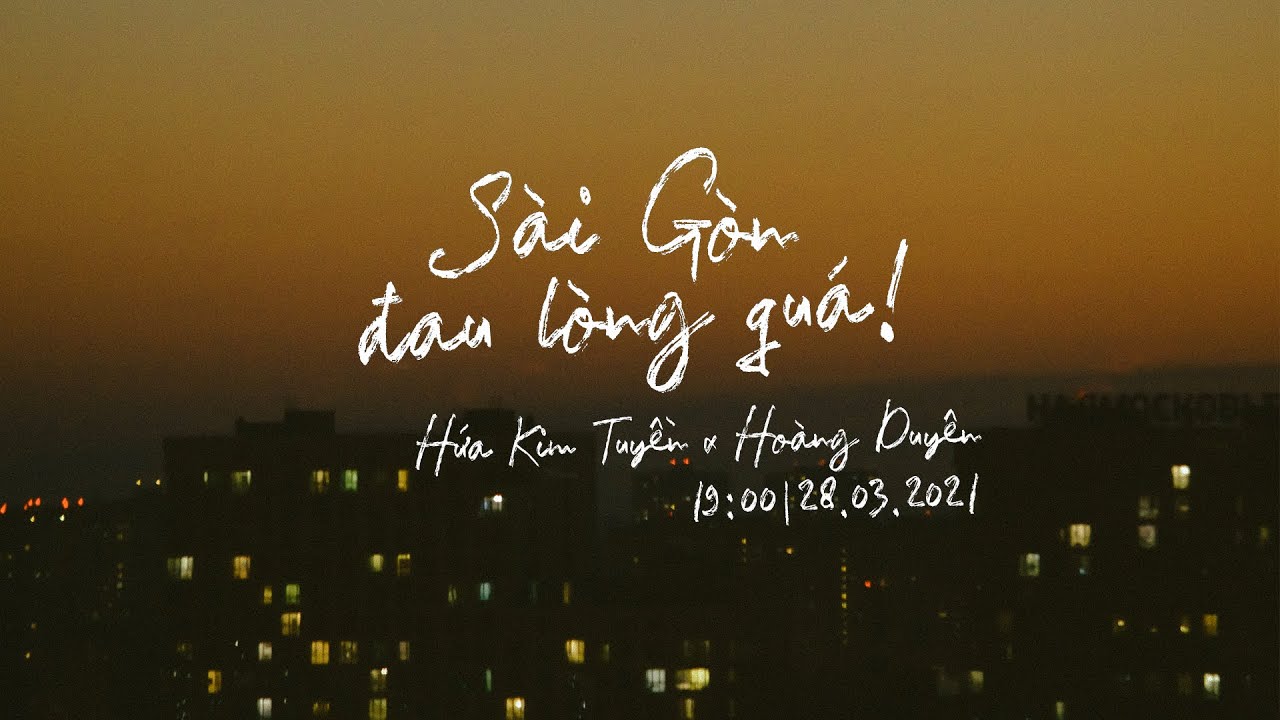 Sài Gòn
đau lòng quá!
Hứa Kim Tuyền x Hoàng Duyên
19:00|28.03.2021